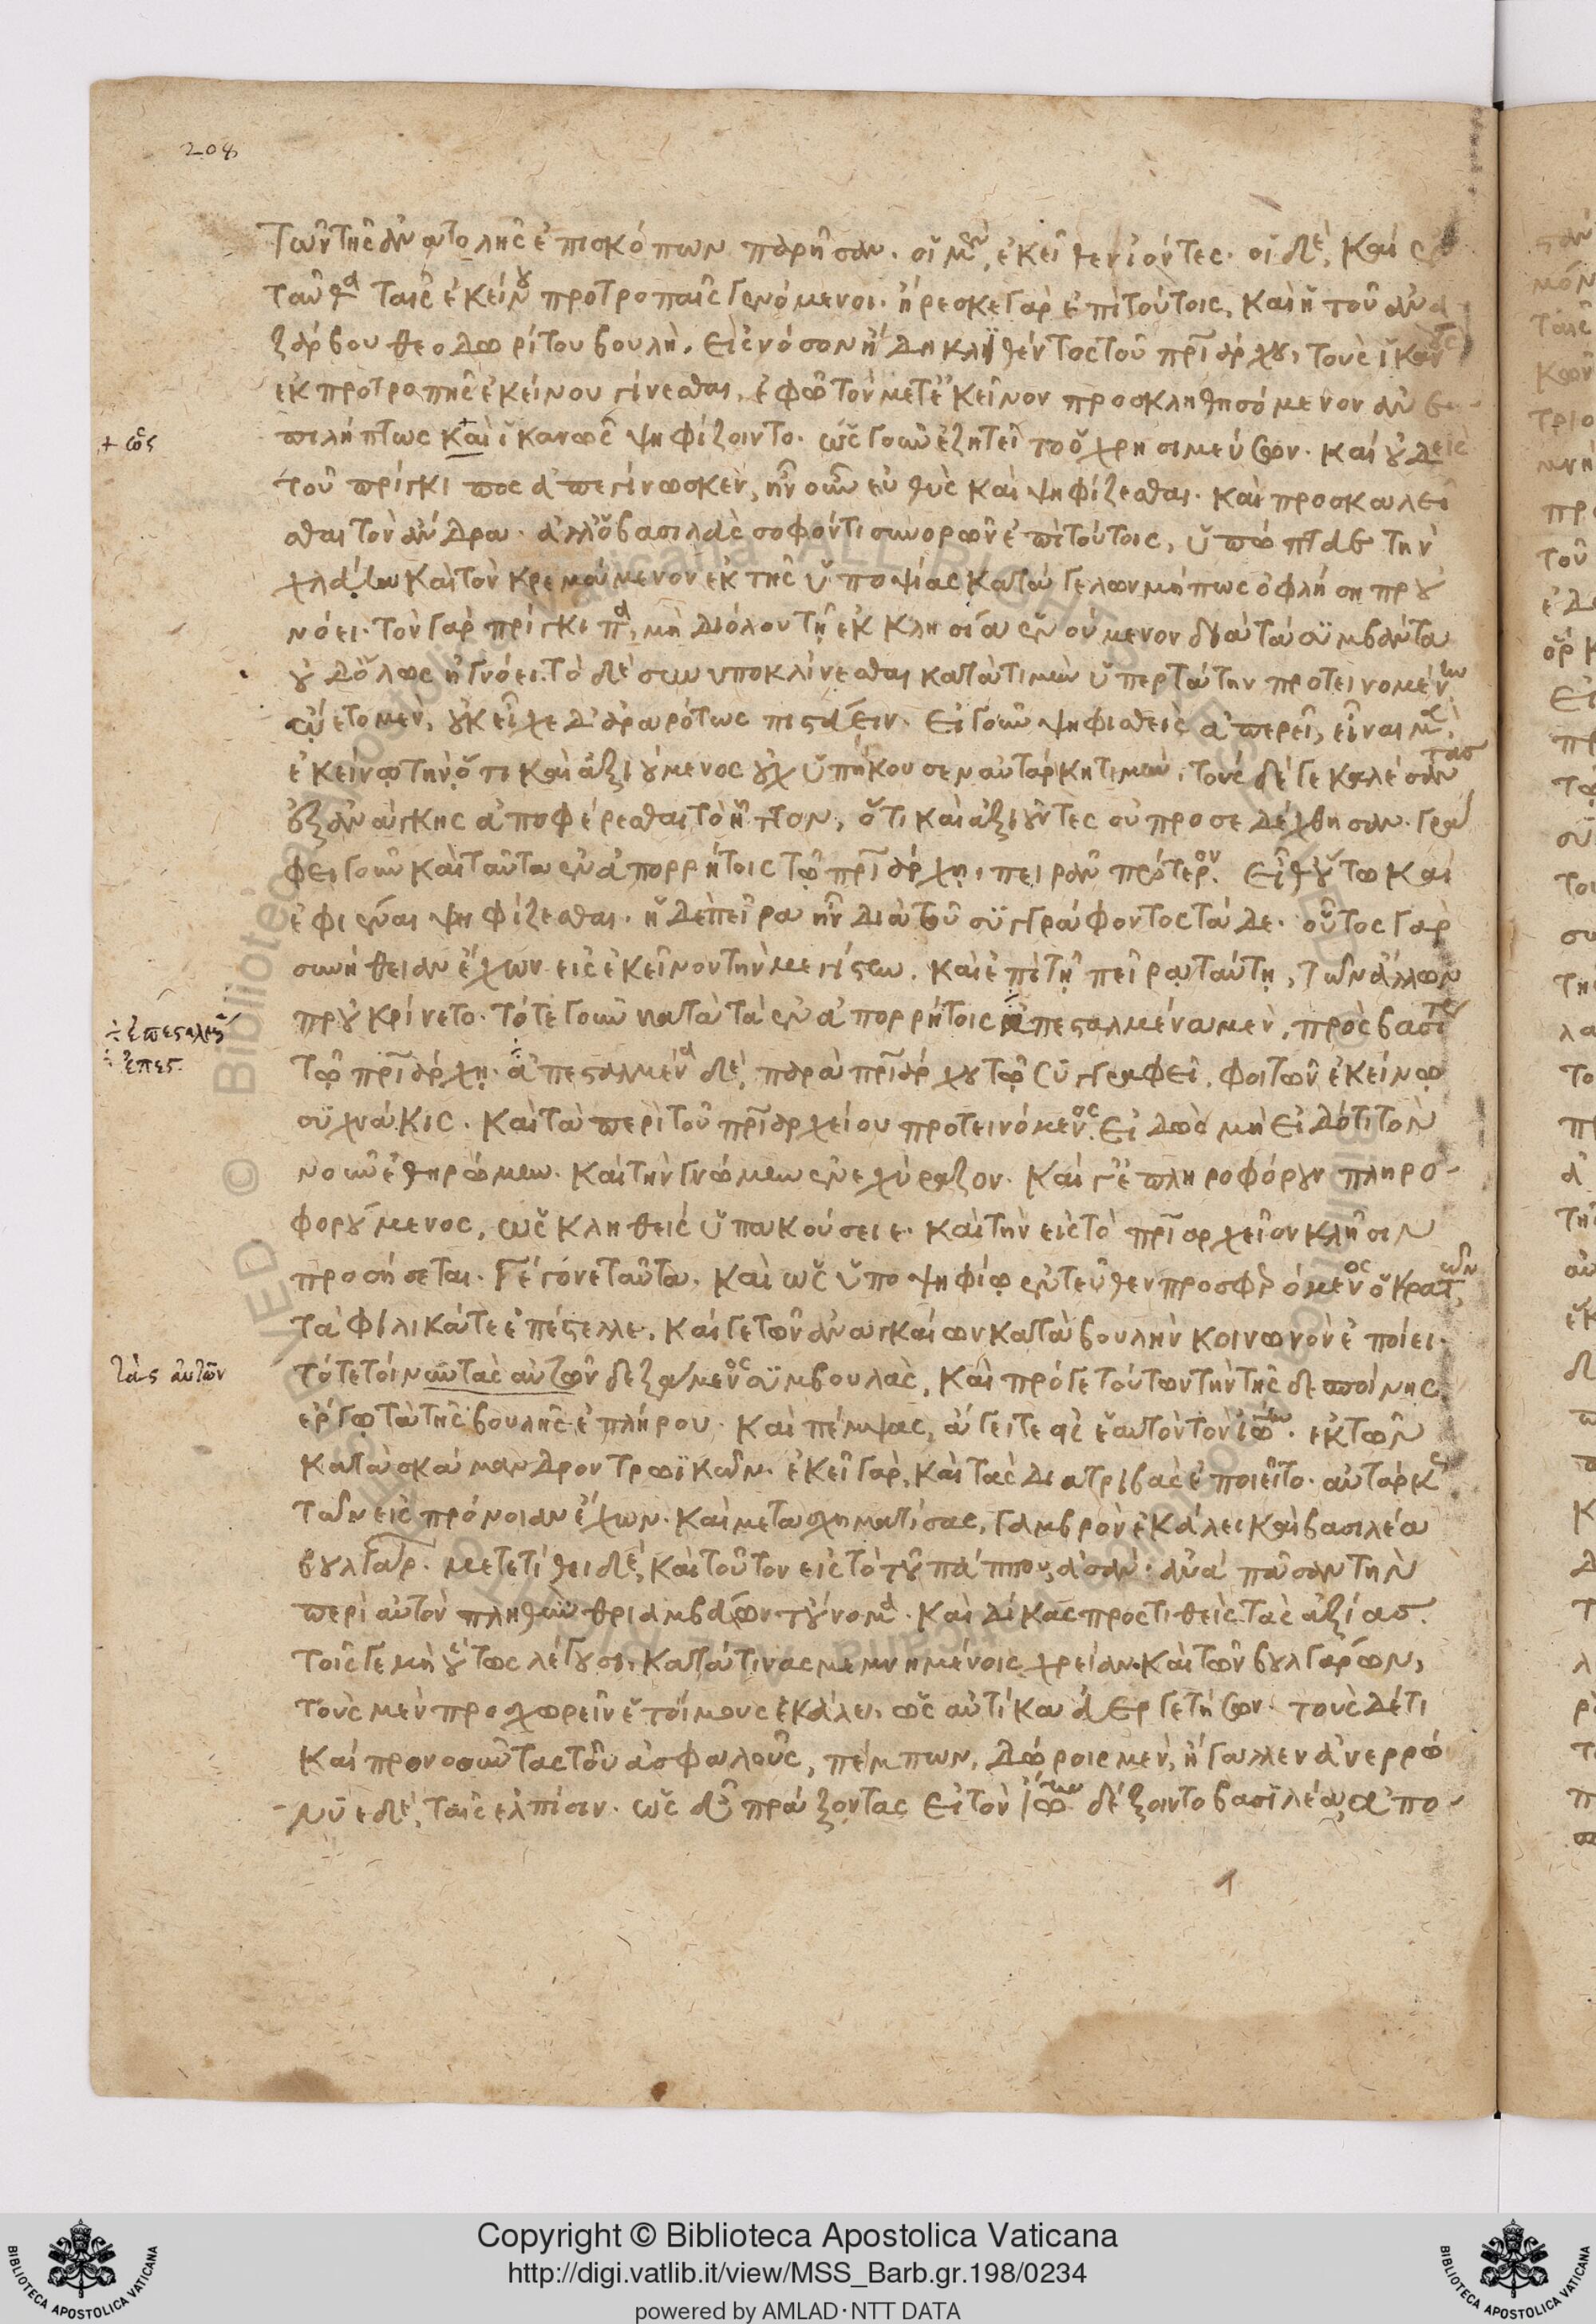 208
τῶν τῆς ἀνατολῆς ἐπισκόπων παρῆσαν. οἱ μὲν, ἐκεῖθεν ἰόντες. οἱ δὲ, καὶ ἐν
ταῦθα ταῖς ἐκείνου προτροπαῖς γενόμενοι. ἤρεσκε γὰρ ἐπὶ τούτοις, καὶ ἡ τοῦ ἀνα
ζάρβου θεοδωρίτου βουλὴ. εἰς νόσον ἤδη κλιθέντος τοῦ πριάρχου, τοὺς
ἐκ προτροπῆς ἐκείνου γίνεσθαι, ἐφῶ τὸν μετ' ἐκεῖνον προσκληθησόμενον ἀνε
πιλήπτως καὶ ἱκανῶς ψηφίζοιντο. ὡς γοῦν ἐζητεῖτο ὁ χρησιμεύσων. καὶ οὐδεὶς
+ ὡς
τοῦ πρίγκιπος ἀπεγίνωσκεν, ἦν οὖν εὐθὺς καὶ ψηφίζεσθαι. καὶ προσκαλεῖ
σθαι τὸν ἄνδρα. ἀλλ' ὁ βασιλεὺς σοφόν τι συνορῶν ἐπὶ τούτοις, ὑπώπτευε τὴν
χλεύην καὶ τὸν κρεμάμενον ἐκ τῆς ὑποψίας κατάγελων μήπως ὀφλήση προὐ
νόει. τὸν γὰρ πρίγκιπα, μὴ διόλου τῆ ἐκκλησία εὐνούμενον διὰ τὰ συμβάντα
οὐδόλως ἠγνόει. τὸ δέ σφιν ὑποκλίνεσθαι κατὰ τιμὴν ὑπὲρ ταύτην προτεινομένην
ᾤετο μὲν, οὐκ εἶχε δ' ἀραρότως πιστεύειν. εἰ γοῦν ψηφισθεὶς ἀπερεῖ, εἶναι μὲν
ἐκείνω τιμὴν, ὅτι καὶ ἀξιούμενος οὐχ ὑπήκουσεν αὐτάρκη τιμὴν, τοὺς δέ γε καλέσαντας
ἐξ ἀνάγκης ἀποφέρεσθαι τὸ ἧττον, ὅτι καὶ ἀξιοῦντες οὐ προσεδέχθησαν. γρά
φει γοῦν καὶ ταῦτα ἐν ἀπορρήτοις τῶ πριάρχη, πειρᾶν πρότερον. εἶθ' οὕτω καὶ
ἐφιέναι ψηφίζεσθαι. ἡ δὲ πεῖρα ἦν διὰ τοῦ συγγράφοντος τάδε. οὗτος γὰρ
συνήθειαν ἔχων εἰς ἐκεῖνον τὴν μεγίστην. καὶ ἐπὶ τῆ πείρα ταύτη, τῶν ἄλλων
προὐκρίνετο. τότε γοῦν κατὰ τὰ ἐν ἀπορρήτοις ἀπεσταλμένα μὲν, πρὸς βασι
÷ ἐπεσταλμέν
τῶ πριάρχη. ἀπεσταλμένα δὲ, παρὰ πριάρχου τῶ συγγραφεῖ, φοιτῶν ἐκείνω
÷ ἐπεστ.
συχνάκις. καὶ τὰ περὶ τοῦ πριαρχείου προτεινόμενος εἰδὼς μὴ εἰδότι τὸν
νοῦν ἐθηρώμην. καὶ τὴν γνώμην ἐνεχύραζον. καί γ' ἐπληροφόρουν πληρο-
φορούμενος, ὡς κληθεὶς ὑπακούσειε. καὶ τὴν εἰς τὸ πριαρχεῖον κλῆσιν
προσήσεται. γέγονε ταῦτα. καὶ ὡς ὑποψηφίω ἐντεῦθεν προσφερόμενος ὁ κρατῶν,
τὰ φιλικά τε ἐπέστελλε. καί γε τῶν ἀναγκαίων κατὰ βουλὴν κοινωνὸν ἐποίει.
τότε τοίνυν τὰς αὐτῶν δεξάμενος συμβουλὰς, καὶ πρό γε τούτων τὴν τῆς δεσποίνης
τὰς αὐτῶν
ἔργω τὰ τῆς βουλῆς ἐπλήρου. καὶ πέμψας, ἄγει τε ὡς ἑαυτὸν τὸν ἰῶ. ἐκ τῶν
κατὰ σκάμανδρον τρωϊκῶν. ἐκεῖ γὰρ, καὶ τὰς διατριβὰς ἐποιεῖτο. αὐτάρκη
τῶν εἰς πρόνοιαν ἔχων. καὶ μετασχηματίσας, γαμβρὸν ἐκάλει καὶ βασιλέα
βουλγάρ. μετετίθει δὲ, καὶ τοῦτον εἰς τὸ τοῦ πάππου ἀσὰν. ἀνὰ πᾶσαν τὴν
περὶ αὐτὸν πληθὺν θριαμβεύων τοὔνομα. καὶ δίκας προστιθεὶς τὰς ἀξίας.
τοῖς γε μὴ οὕτως λέγουσι, κατά τινας μεμνημένοις χρείαν. καὶ τῶν βουλγάρων,
τοὺς μὲν προσχωρεῖν ἑτοίμους ἐκάλει, ὡς αὐτίκα εὐεργετήσων. τοὺς δέ τι
καὶ προνοοῦντας τοῦ ἀσφαλοῦς, πέμπων, δώροις μὲν, ἤγαλλεν ἀνερρώ
νυε δὲ, ταῖς ἐλπίσιν. ὡς εὖ πράξοντας εἰ τὸν ἰῶ δέξοιντο βασιλέα, ἀπο-
Copyright © Biblioteca Apostolica Vaticana
http://digi.vatlib.it/view/MSS_Barb.gr.198/0234
powered by AMLAD·NTT DATA
BIBLIOTECA APOSTOLICA VATICANA
BIBLIOTECA APOSTOLICA VATICANA